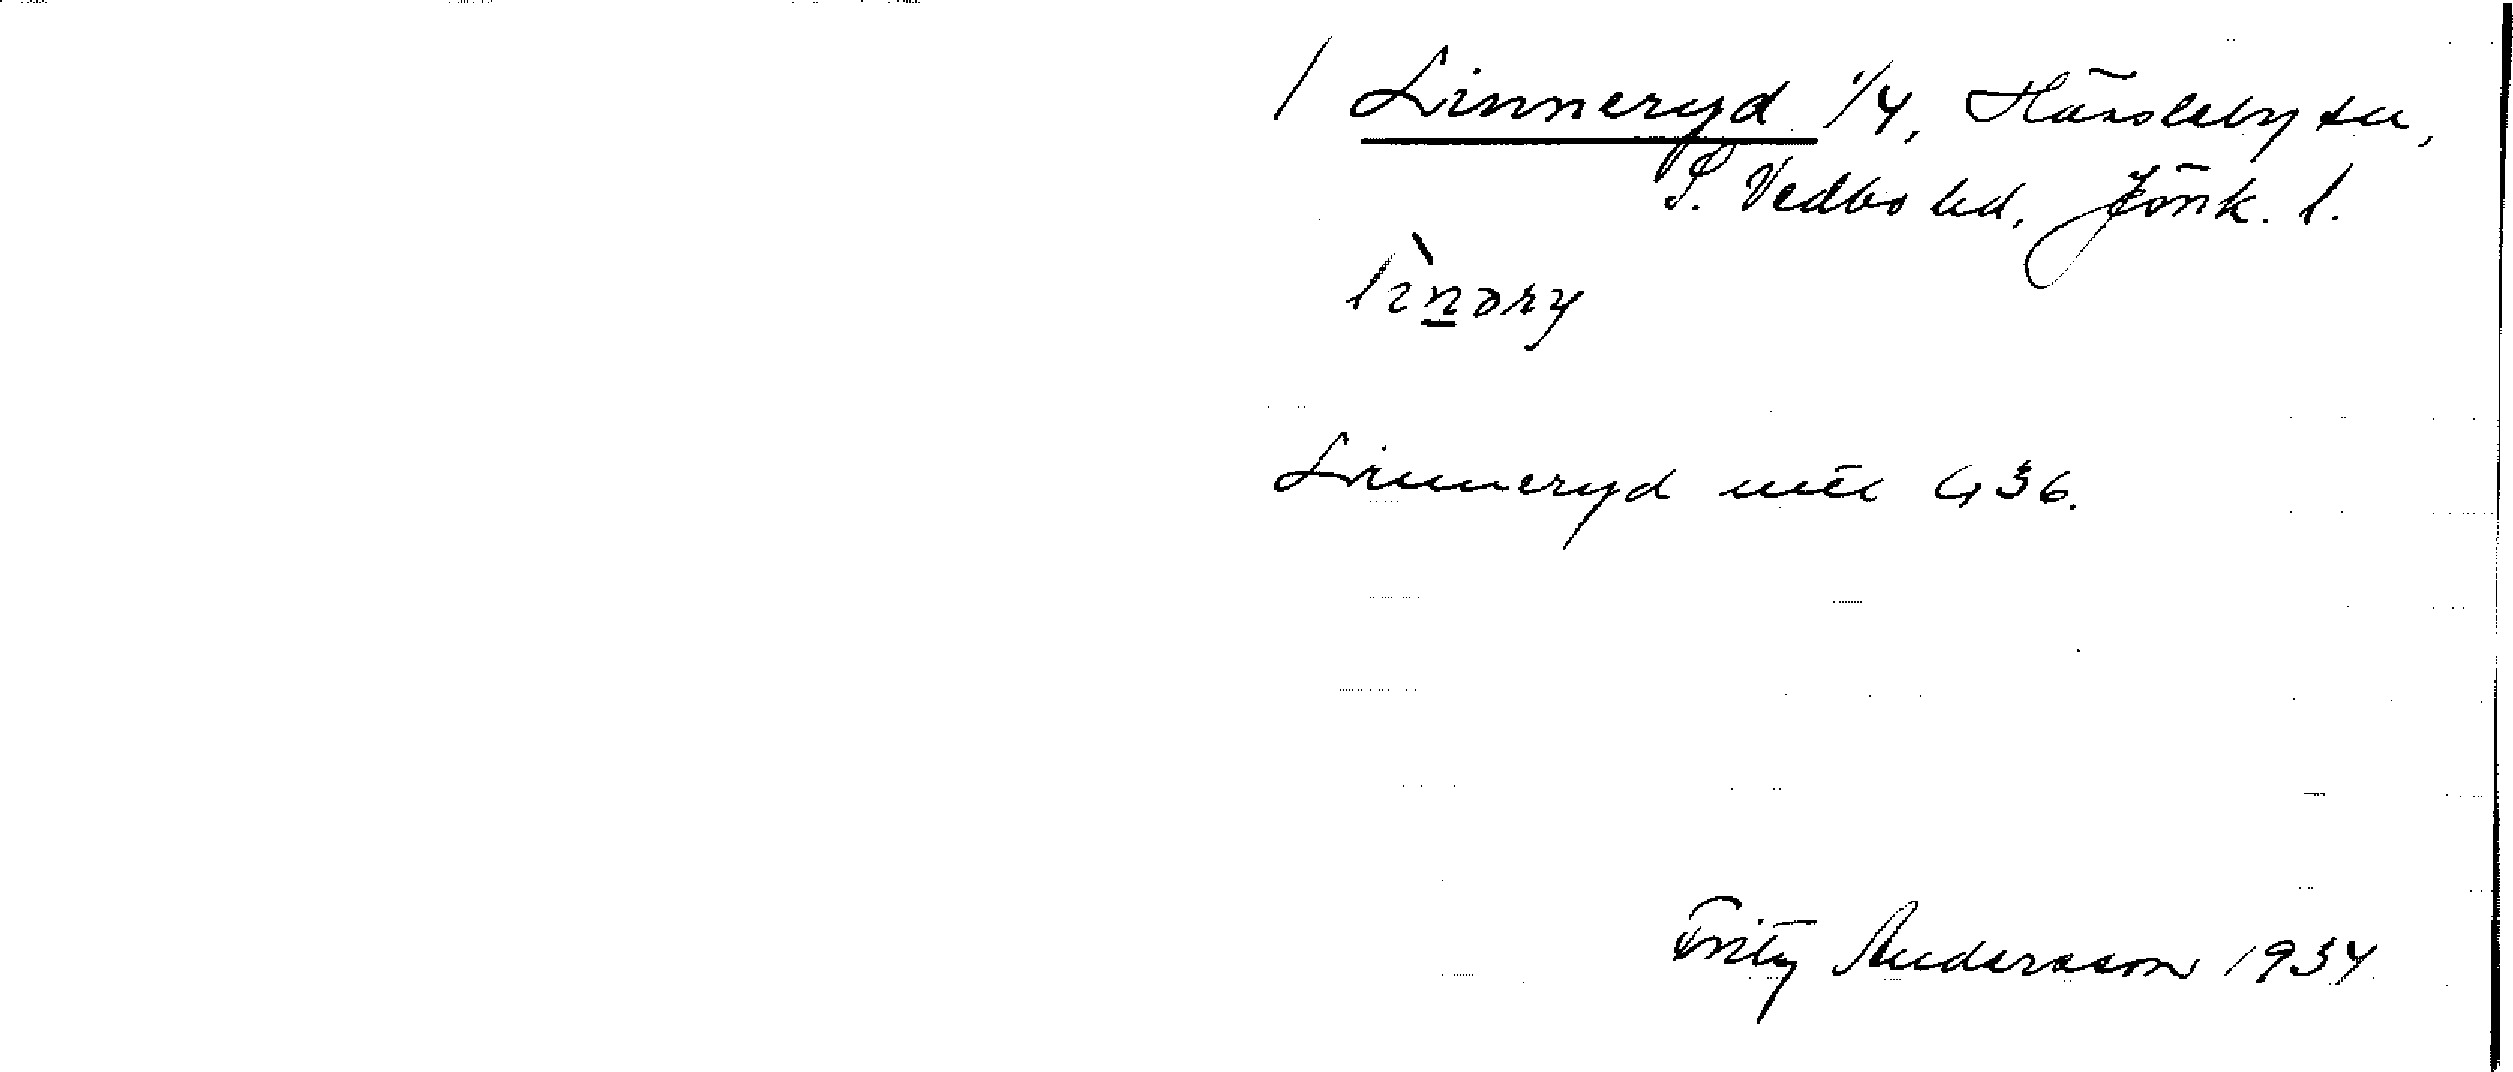 / Linneryd 1/4, Häroleby sn,
S. Vedbo hd, Jönk. l.
lìnəry
Linneryd G 36.
Fritz Andersson 1934